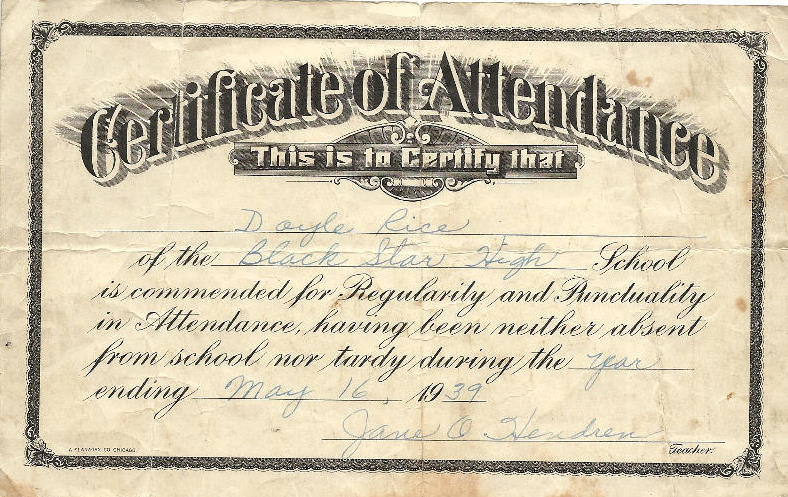 Certificate of Attendance
This is to Certify that
Doyle Rice
of the Black Star High School
is commended for Regularity and Punctuality
in Attendance, having been neither absent
from school nor tardy during the year
ending May 16, 1939
Jane O Hendren
Teacher.
A FLANAGAN CO CHICAGO